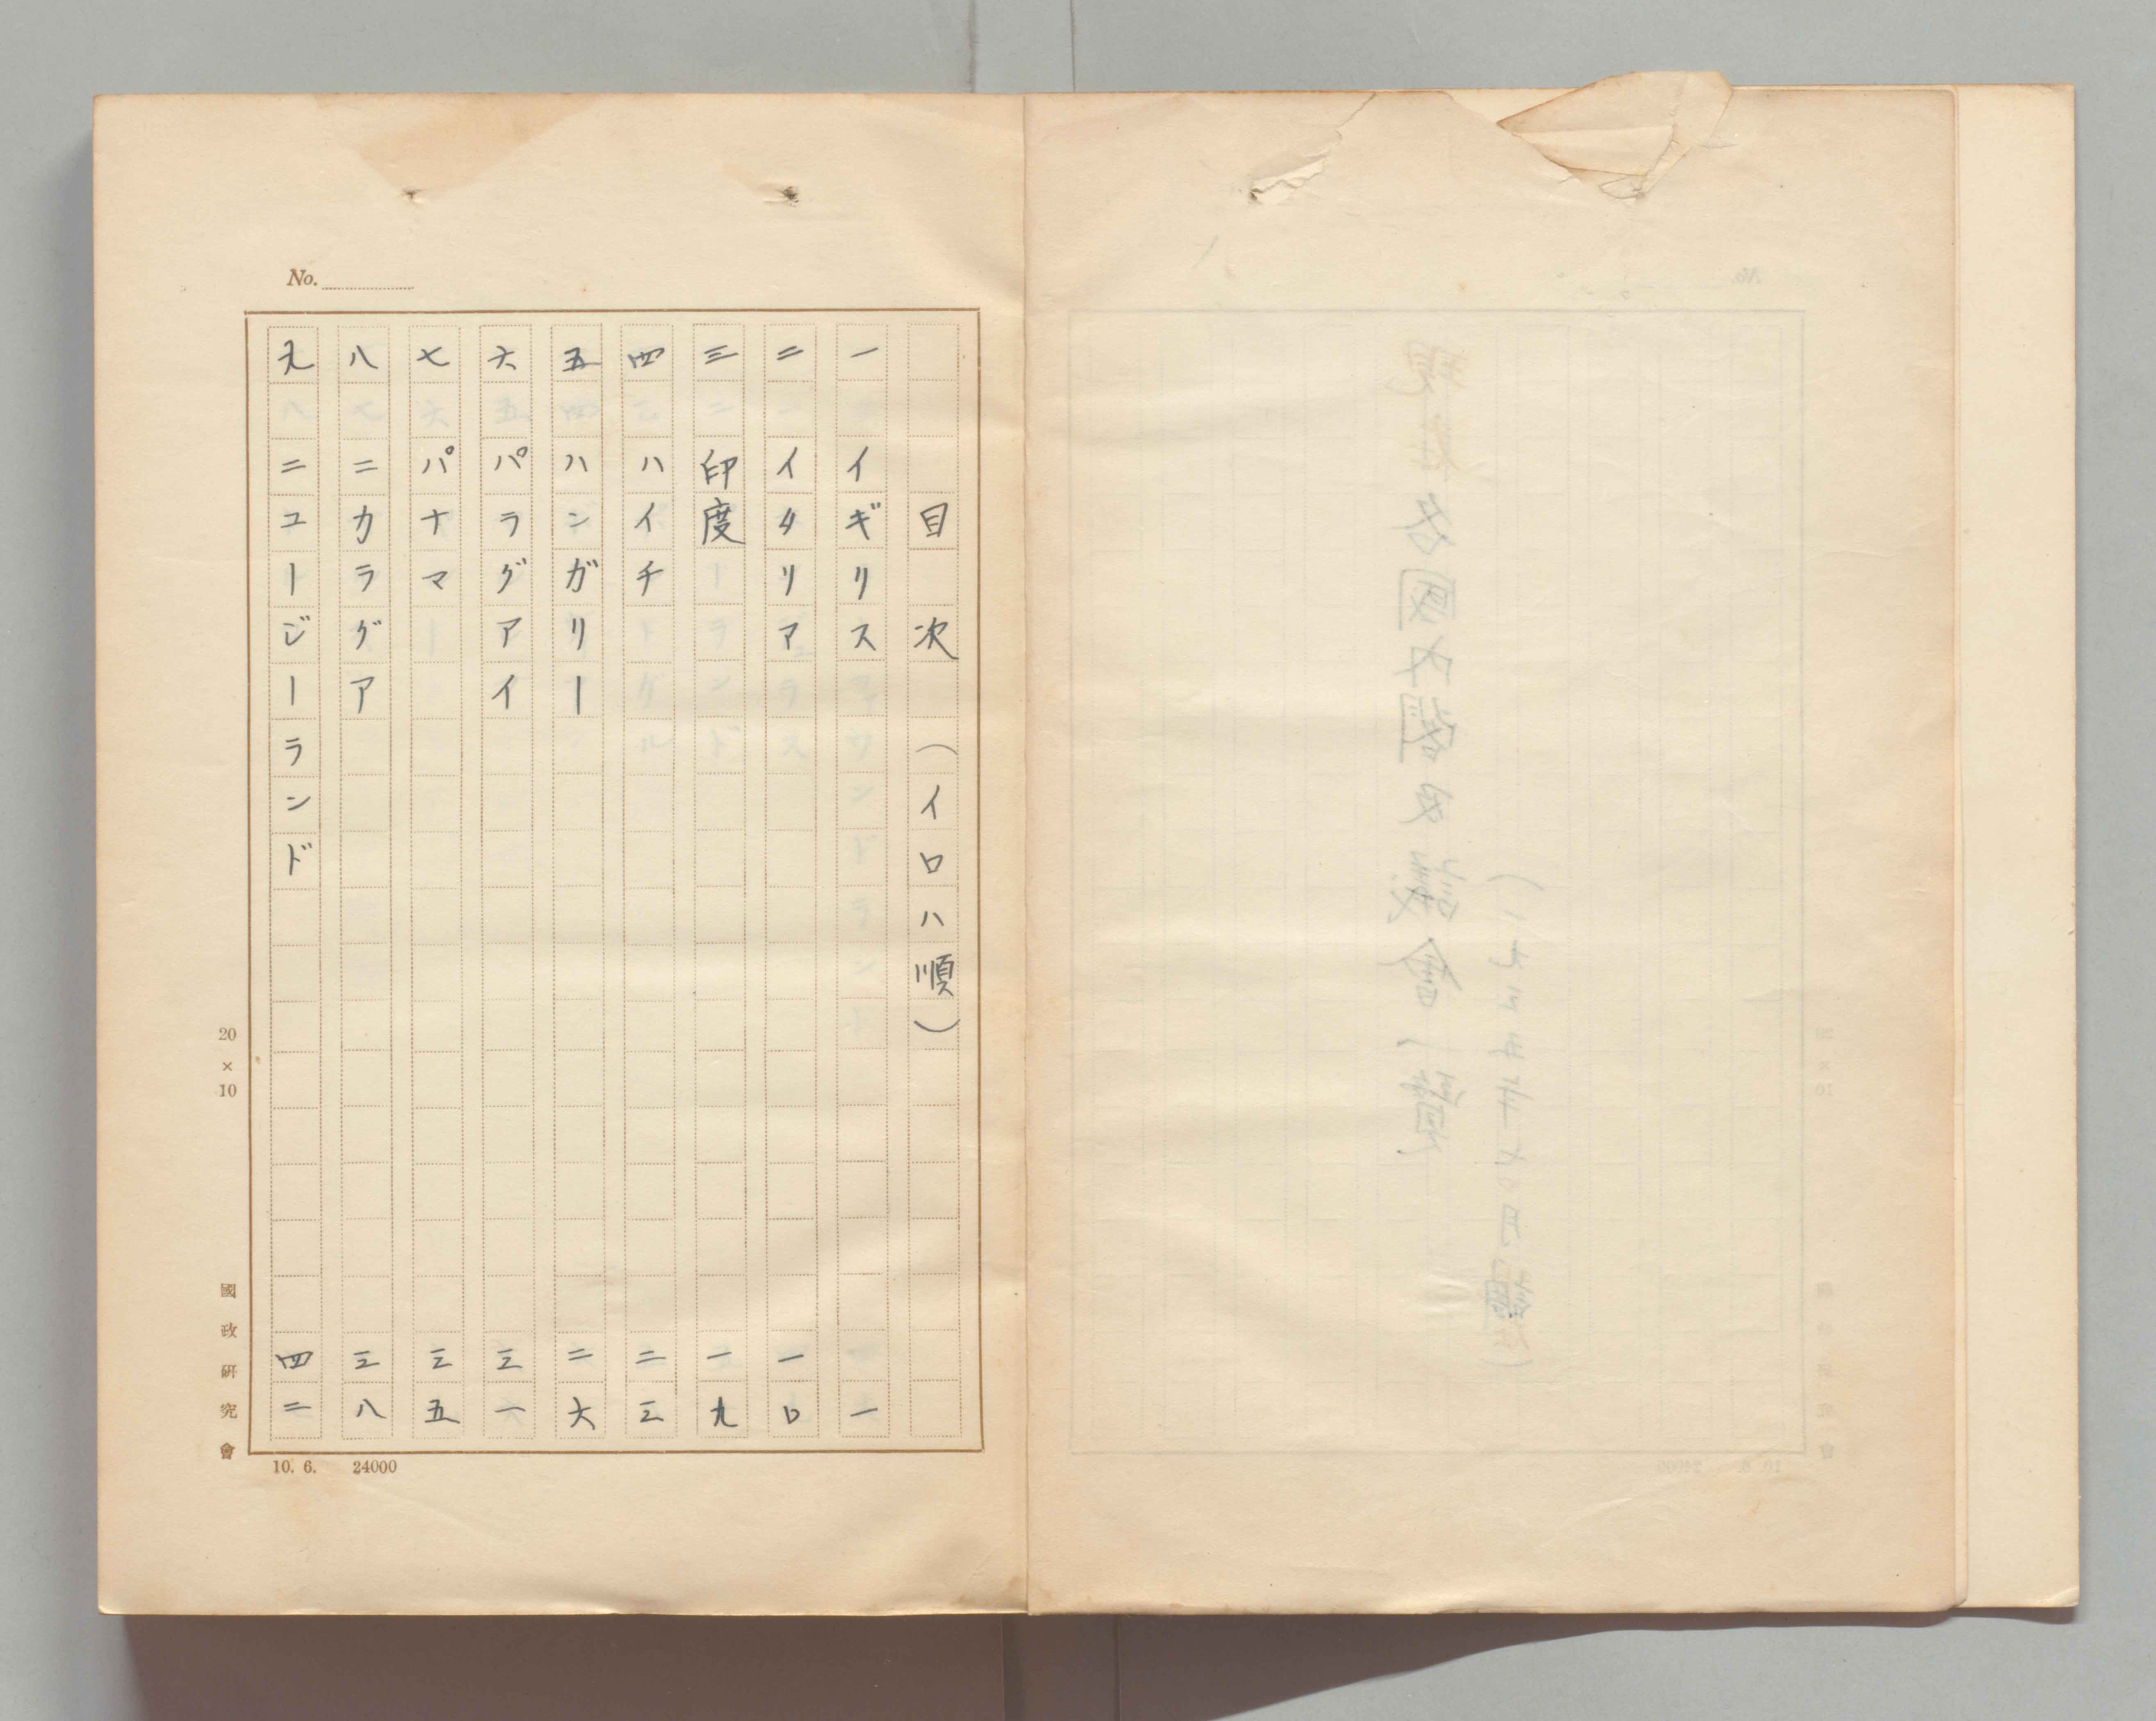 No.
目次（イロハ順）
一 イギリス 一
二 イタリア 一〇
三 印度 一九
四 ハイチ 二三
五 ハンガリー 二六
六 パラグアイ 三一
七 パナマ 三五
八 ニカラグア 三八
九 ニユージーランド 四二
20×10
國政研究會
10. 6. 24000